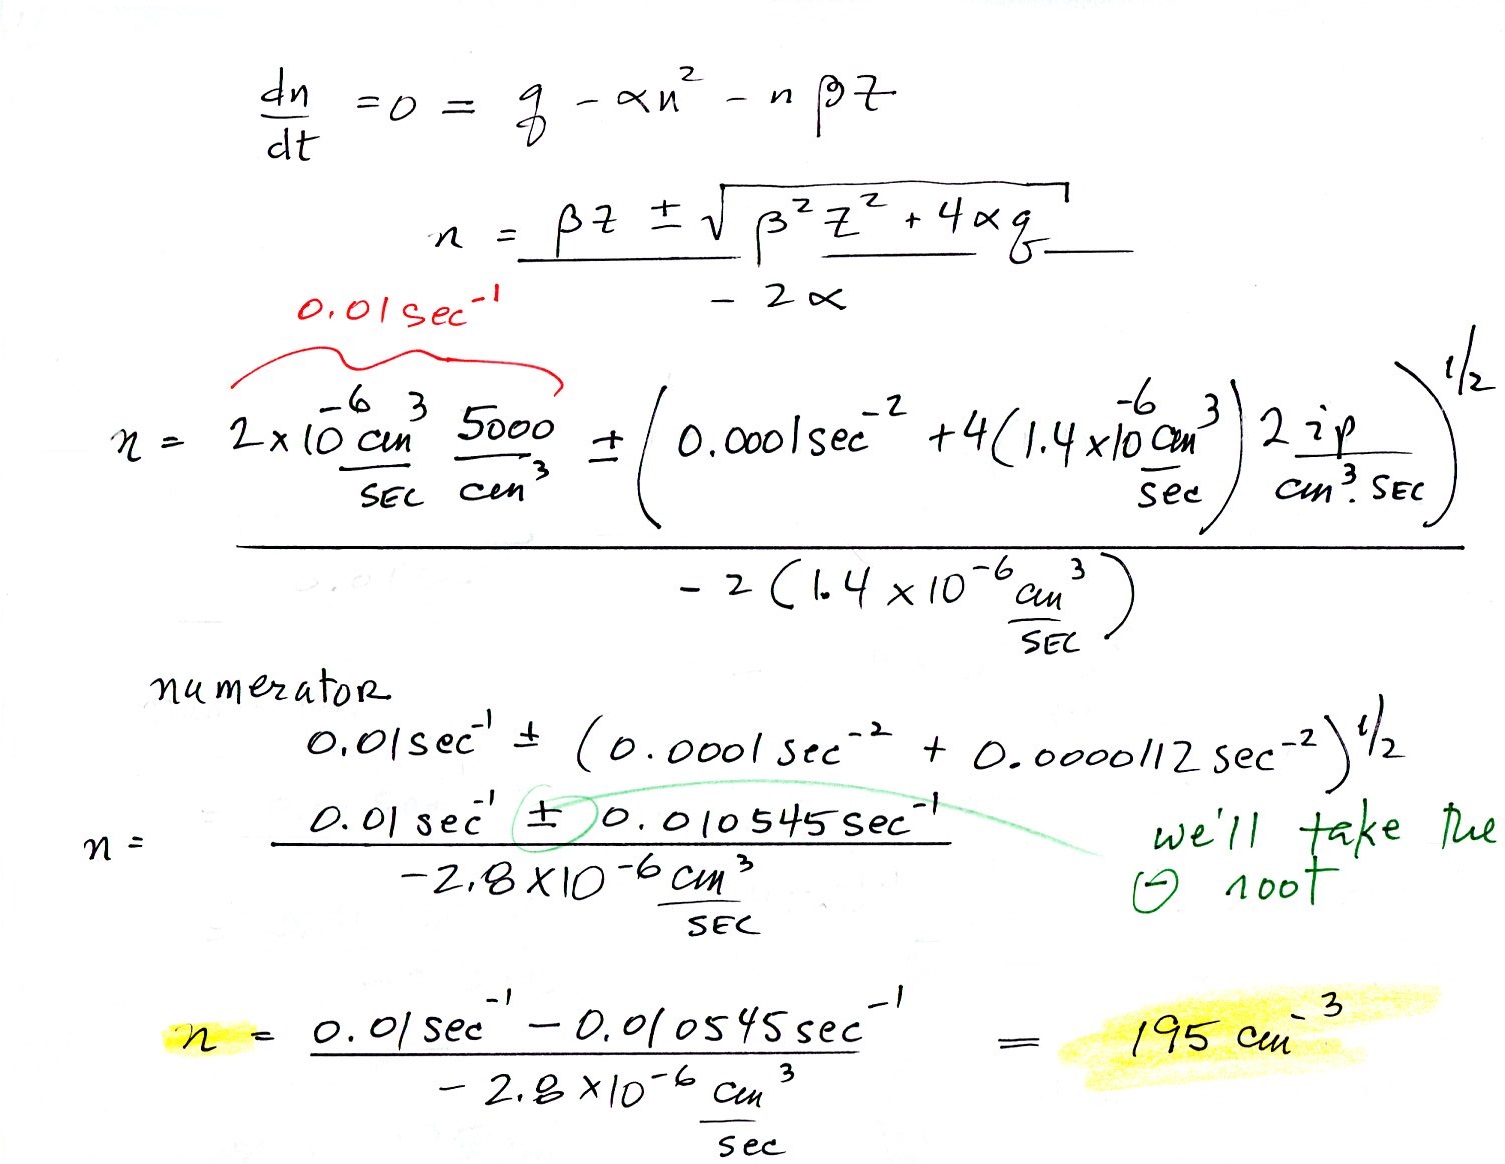 dn/dt = 0 = q - αn² - nβZ
n = (βZ ± √(β²Z² + 4αq)) / (-2α)
0.01 sec⁻¹
n = (2 x 10⁻⁶ cm³/SEC 5000/cm³ ± (0.0001 sec⁻² + 4(1.4 x 10⁻⁶ cm³/sec) 2 ip/cm³·SEC)^1/2) / (-2(1.4 x 10⁻⁶ cm³/SEC))
numerator
0.01 sec⁻¹ ± (0.0001 sec⁻² + 0.0000112 sec⁻²)^1/2
n = (0.01 sec⁻¹ ± 0.010545 sec⁻¹) / (-2.8 x 10⁻⁶ cm³/SEC)
we'll take the
⊖ root
n = (0.01 sec⁻¹ - 0.010545 sec⁻¹) / (-2.8 x 10⁻⁶ cm³/sec) = 195 cm⁻³